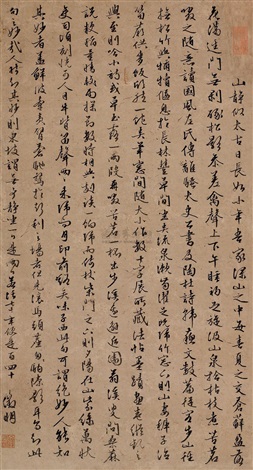 山靜似太古日長如小年吾家深山之中每春夏之交蒼蘚盈階落
花滿逕門無剝啄松影參差禽聲上下午睡初足旋汲山泉拾松枝煮苦茗
啜之隨意讀國風左氏傳離騷太史公書及陶杜詩韓蘇文數篇從容步山徑
撫松竹與麛犢共偃息於長林豐草間坐弄流泉漱齒濯足既歸竹窗下則山妻稚子作
筍蕨供麥飯欣然一飽弄筆窗間隨大小作數十字展所藏法帖筆蹟畫卷縱觀之
興至則吟小詩或草玉露一兩段再啜苦茗一杯出步溪邊邂逅園翁溪友問桑麻
說秔稻量晴較雨探節數時相與劇談一餉歸而倚杖柴門之下則夕陽在山紫綠萬狀
變幻頃刻怳可人目牛背笛聲兩兩來歸而月印前谿矣味子西此句可謂絕妙人能知
其妙者蓋鮮彼牽黃臂蒼馳獵於聲利之場者但見滾滾馬頭塵匆匆駒隙影耳烏知此
句之妙哉人能知此妙則東坡所謂無事此靜坐一日是兩日若活七十年便是百四十
徵明